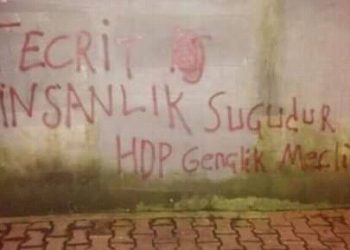 TECRİT
İNSANLIK Suçudur
HDP Gençlik Mecli